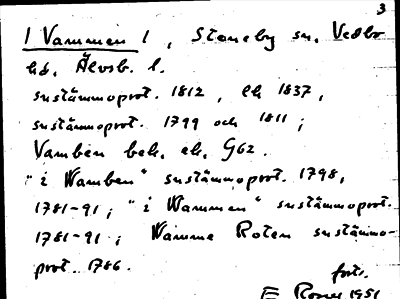 3
I Vammen I, Steneby sn, Vedbo
hd, Älvsb. l.
sustämmoprot. 1812, lh 1837,
sustämmoprot. 1799 och 1811;
Vamben beh. ek. G62.
"i Wamben" sustämmoprot. 1798,
1781-91; "i Wammen" sustämmoprot.
1781-91; Wamme Roten sustämmo-
prot. 1786.
forts.
1951